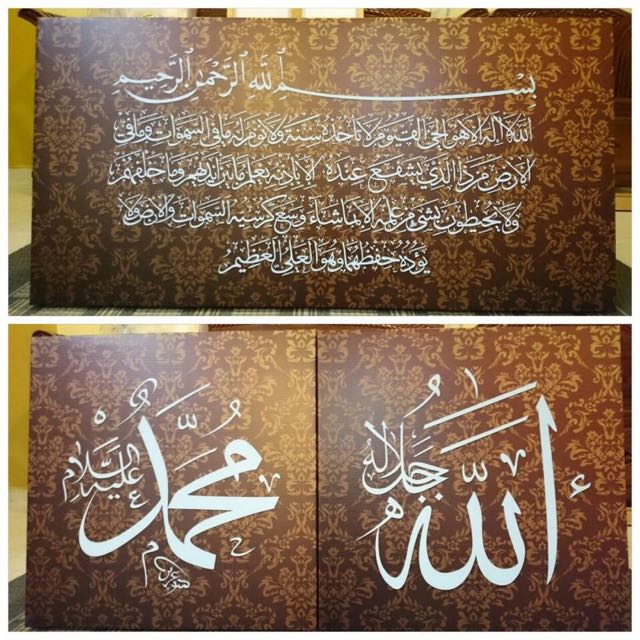 بِسْمِ ٱللَّهِ ٱلرَّحْمَٰنِ ٱلرَّحِيمِ
اللّٰه لا اله الا هو الحي القيوم لا تأخذه سنة ولا نوم له ما في السموات وما في
الارض من ذا الذي يشفع عنده الا بإذنه يعلم ما بين ايديهم وما خلفهم
ولا يحيطون بشيء من علمه الا بما شاء وسع كرسيه السموات والارض ولا
يؤده حفظهما وهو العلي العظيم
اللّٰه
جل جلاله
محمد
عليه السلام